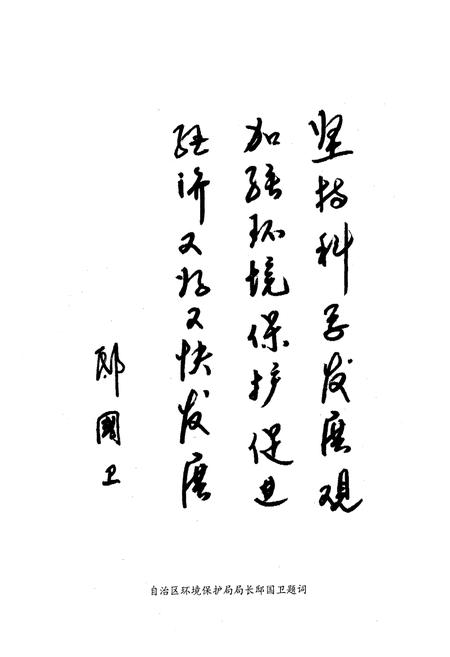 坚持科学发展观
加强环境保护促进
经济又好又快发展
邸國卫
自治区环境保护局局长邸国卫题词